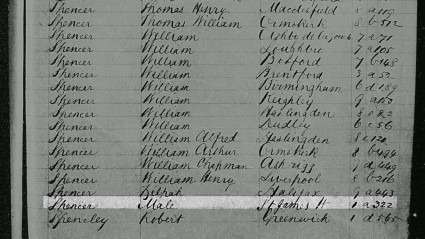 Spencer Thomas Henry Macclesfield 8 a
Spencer Thomas William Ormskirk 8 b 512
Spencer William Ashby de la Zouch 7 a 71
Spencer William Loughbro 7 a 105
Spencer William Bedford
Spencer William Brentford 3 a 52
Spencer William Birmingham 6 d 189
Spencer William Keighley 9 a 150
Spencer William Haslingden 8 e 82
Spencer William Dudley 6 c 56
Spencer William Alfred Haslingden 8 e
Spencer William Arthur Ormskirk 8 b 494
Spencer William Chapman 9 d 449
Spencer William Henry Liverpool 8 b 216
Spencer Zilpah Halifax 9 a 443
Spencer Male St James W 1 a 322
Spenceley Robert Greenwich 1 d 565